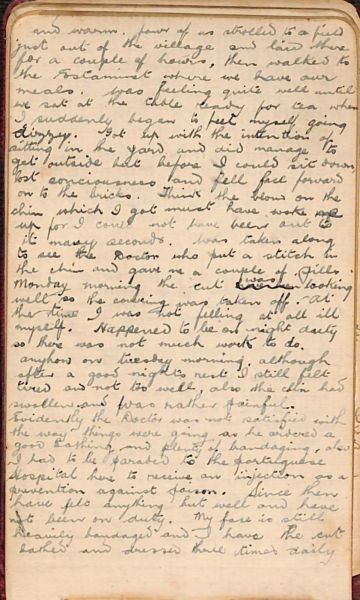 and warm. four of us strolled to a field
just out of the village and laid there
for a couple of hours, then walked to
the Estaminet where we have our
meals. Was feeling quite well until
we sat at the table ready for tea when
I suddenly began to feel myself going
dizzy. Got up with the intention of
sitting in the yard and did manage to
get outside but before I could sit down,
lost consciousness and fell face forward
on to the bricks. Think the blow on the
chin which I got must have woke me
up for I could not have been out to
it many seconds. Was taken along
to see the Doctor who put a stitch in
the chin and gave me a couple of Pills.
Monday morning the cut was looking
well so the covering was taken off. At
the time I was not felling at all ill
myself. Happened to be on night duty
so there was not much work to do.
anyhow on Tuesday morning, although
after a good nights rest I still felt
tired and not too well, also the chin had
swollen and was rather painful.
Evidently the Doctor was not satisfied with
the way things were going as he ordered a
good bathing and plenty of bandaging, also
I had to be paraded to the Portuguese
Hospital here to receive an injection as a
prevention against poison. Since then
have felt anything but well and have
not been on duty. My face is still
heavily bandaged and I have the cut
bathed and dressed three times daily